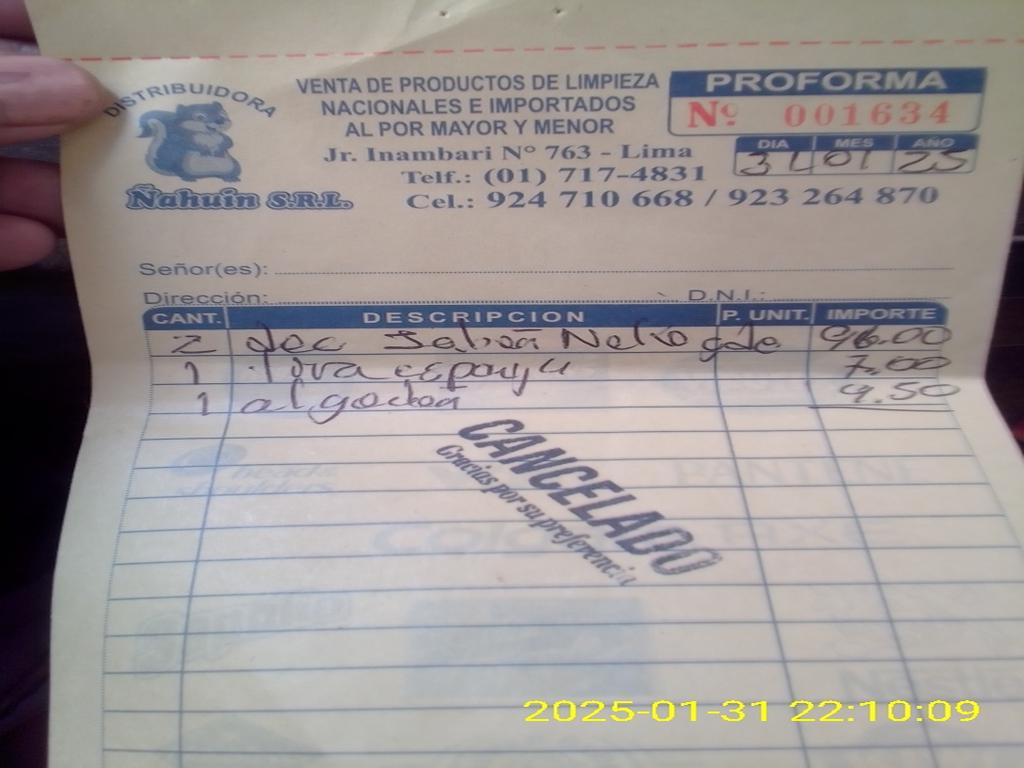 DISTRIBUIDORA
Ñahuin S.R.L.
VENTA DE PRODUCTOS DE LIMPIEZA
NACIONALES E IMPORTADOS
AL POR MAYOR Y MENOR
Jr. Inambari Nº 763 - Lima
Telf.: (01) 717-4831
Cel.: 924 710 668 / 923 264 870
PROFORMA
Nº 001634
DIA MES AÑO
31 01 25
Señor(es):
Dirección: D.N.I.:
CANT. DESCRIPCION P. UNIT. IMPORTE
2 doc Jabon Neko gde 96.00
1 esponja 7.00
1 algodon 4.50
CANCELADO
Gracias por su preferencia
2025-01-31 22:10:09